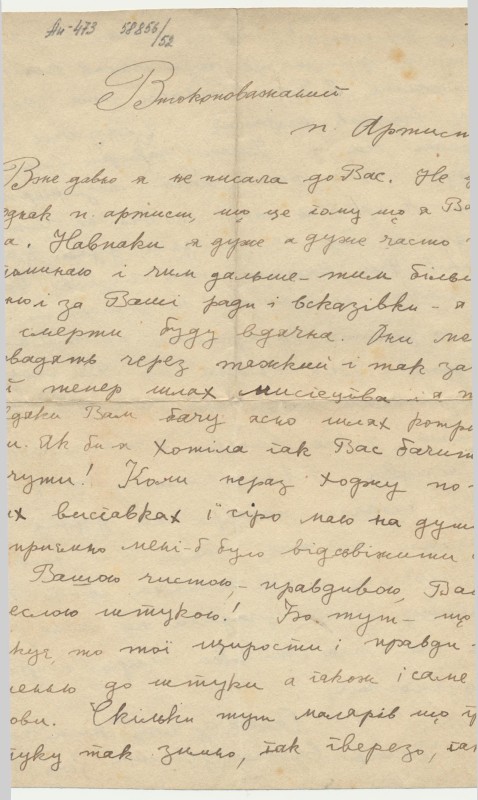 Ан-473 58856/52
Високоповажаний
п. Артист
Вже давно я не писала до Вас. Не
еднак п. артист, що це тому що я
а. Навпаки я дуже а дуже часто
минаю і чим дальше - тим біль
ю і за Ваші ради і вказівки - я
смерти буду вдячна. Они ме
вадять через тяжкий і так за
й тепер шлях мисіецтва і я
дяки Вам бачу ясно шлях
и. Як би я хотіла так Вас бачит
чути! Коли нераз ходжу по
их виставках і сіро мені на душ
приємно мені-б було відсвіжити
Вашою чистою, - правдивою, Ва
еслою штукою! Бо тут - що
куч, то тої щирости і правди
ненью до штуки а також і саме
ови. Скільки тут малярів що
туку так зимно, так тверезо, так